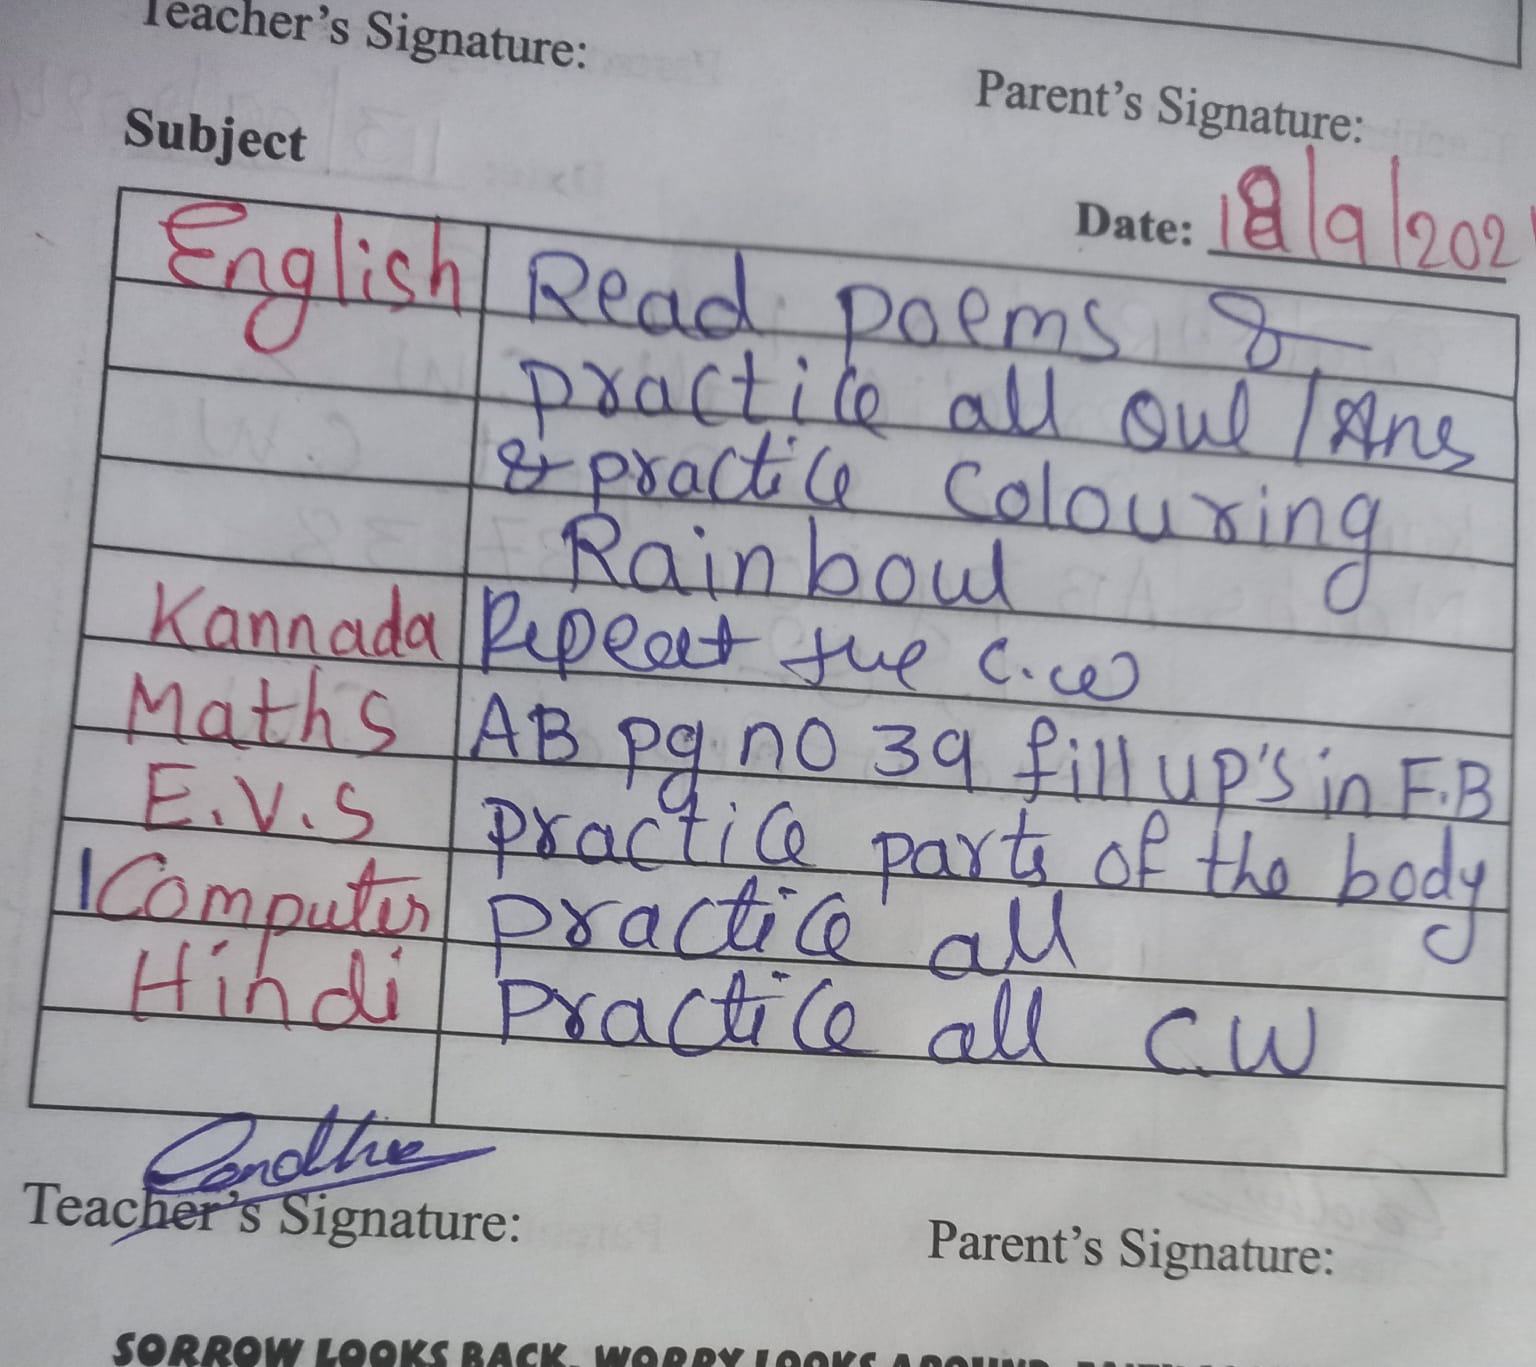 Teacher's Signature:
Parent's Signature:
Subject
Date: 18/9/202
English Read poems &
practice all Que / Ans
& practice Colouring
Rainbow
Kannada Repeat the C.W
Maths AB pg no 39 fill up's in F.B
E.V.S practice parts of the body
Computer practice all
Hindi Practice all C.W
Teacher's Signature:
Parent's Signature:
SORROW LOOKS BACK, WORRY LOOKS AROUND,